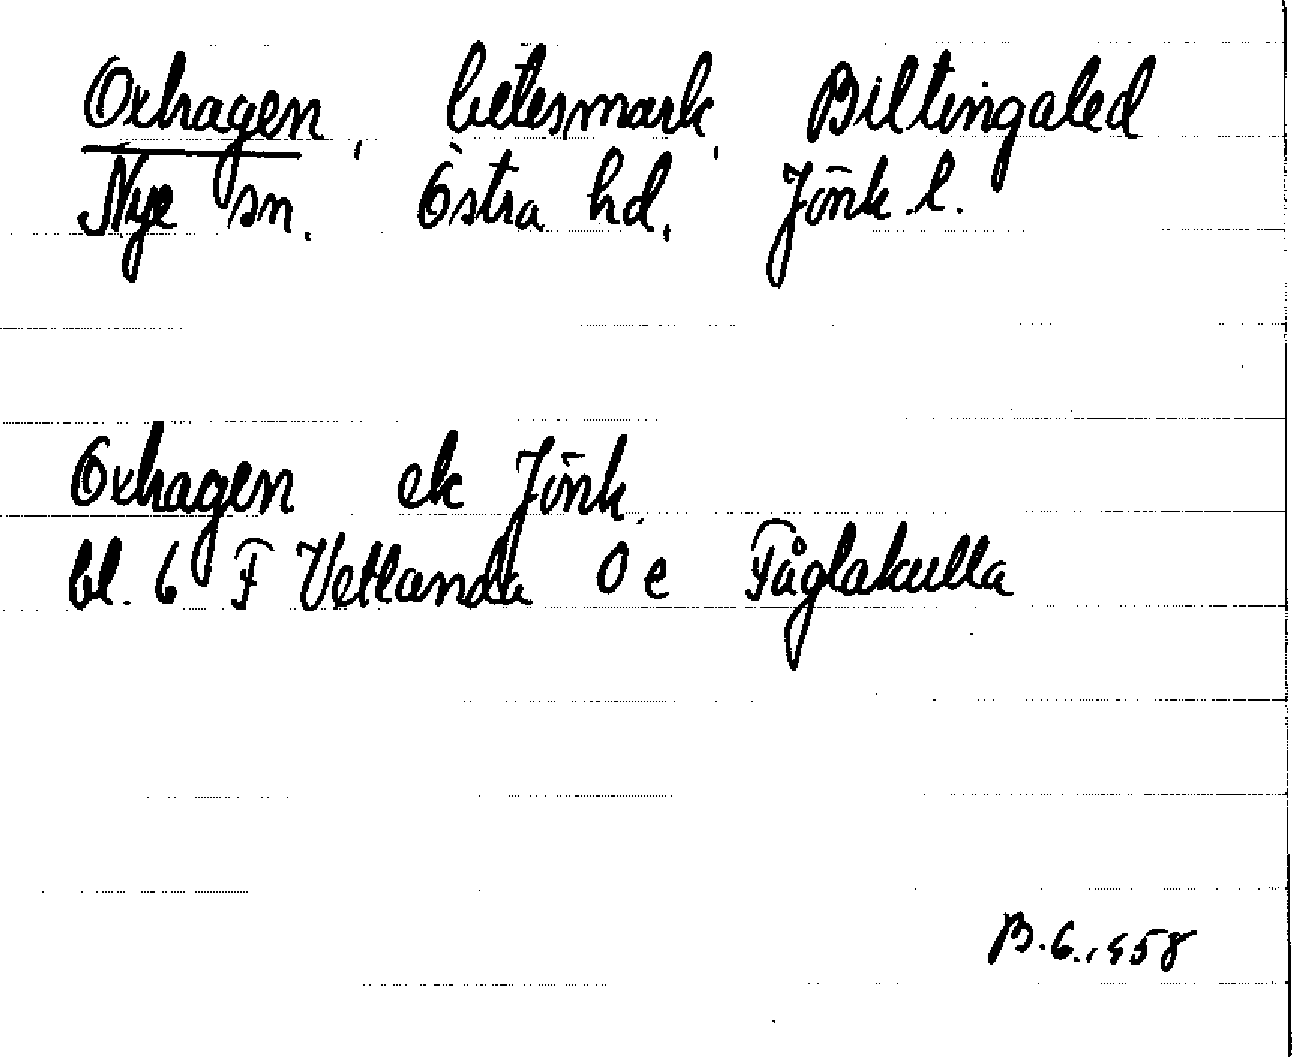 Oxhagen, betesmark, Biltingaled
Nye sn. Östra hd, Jönk. l.
Oxhagen ek Jönk.
bl. 6 F Vetlanda O e Fåglakulla
B.G. 1958